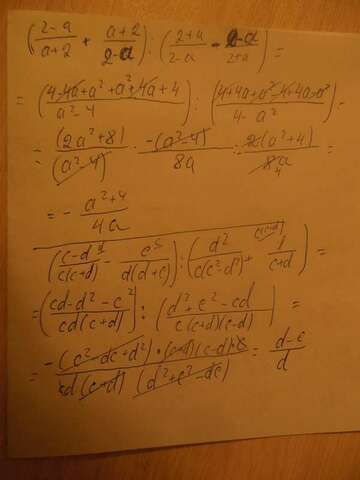 (2-a/a+2 + a+2/2-a) : (2+a/2-a - 2-a/2+a) =
= (4-4a+a²+a²+4a+4/a²-4) : (4+4a+a²-4+4a-a²/4-a²) =
= (2a²+8)/(a²-4) · -(a²-4)/8a = 2(a²+4)/8a 4 =
= - a²+4/4a
(c-d/c(c+d) - c/d(d+c)) : (d²/c(c²-d²) + 1/c+d) =
= (cd-d²-c²/cd(c+d)) : (d²+c²-cd/c(c+d)(c-d)) =
= -(c²-dc+d²)·(c+d)(c-d)·c/cd(c+d)(d²+c²-dc) = d-c/d